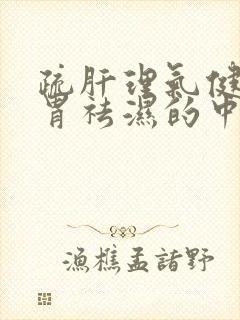 疏肝理氣健
胃祛濕的中
漁樵孟諸野